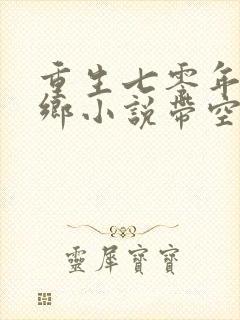 重生七零年
鄉小説帶空
靈犀寶寶